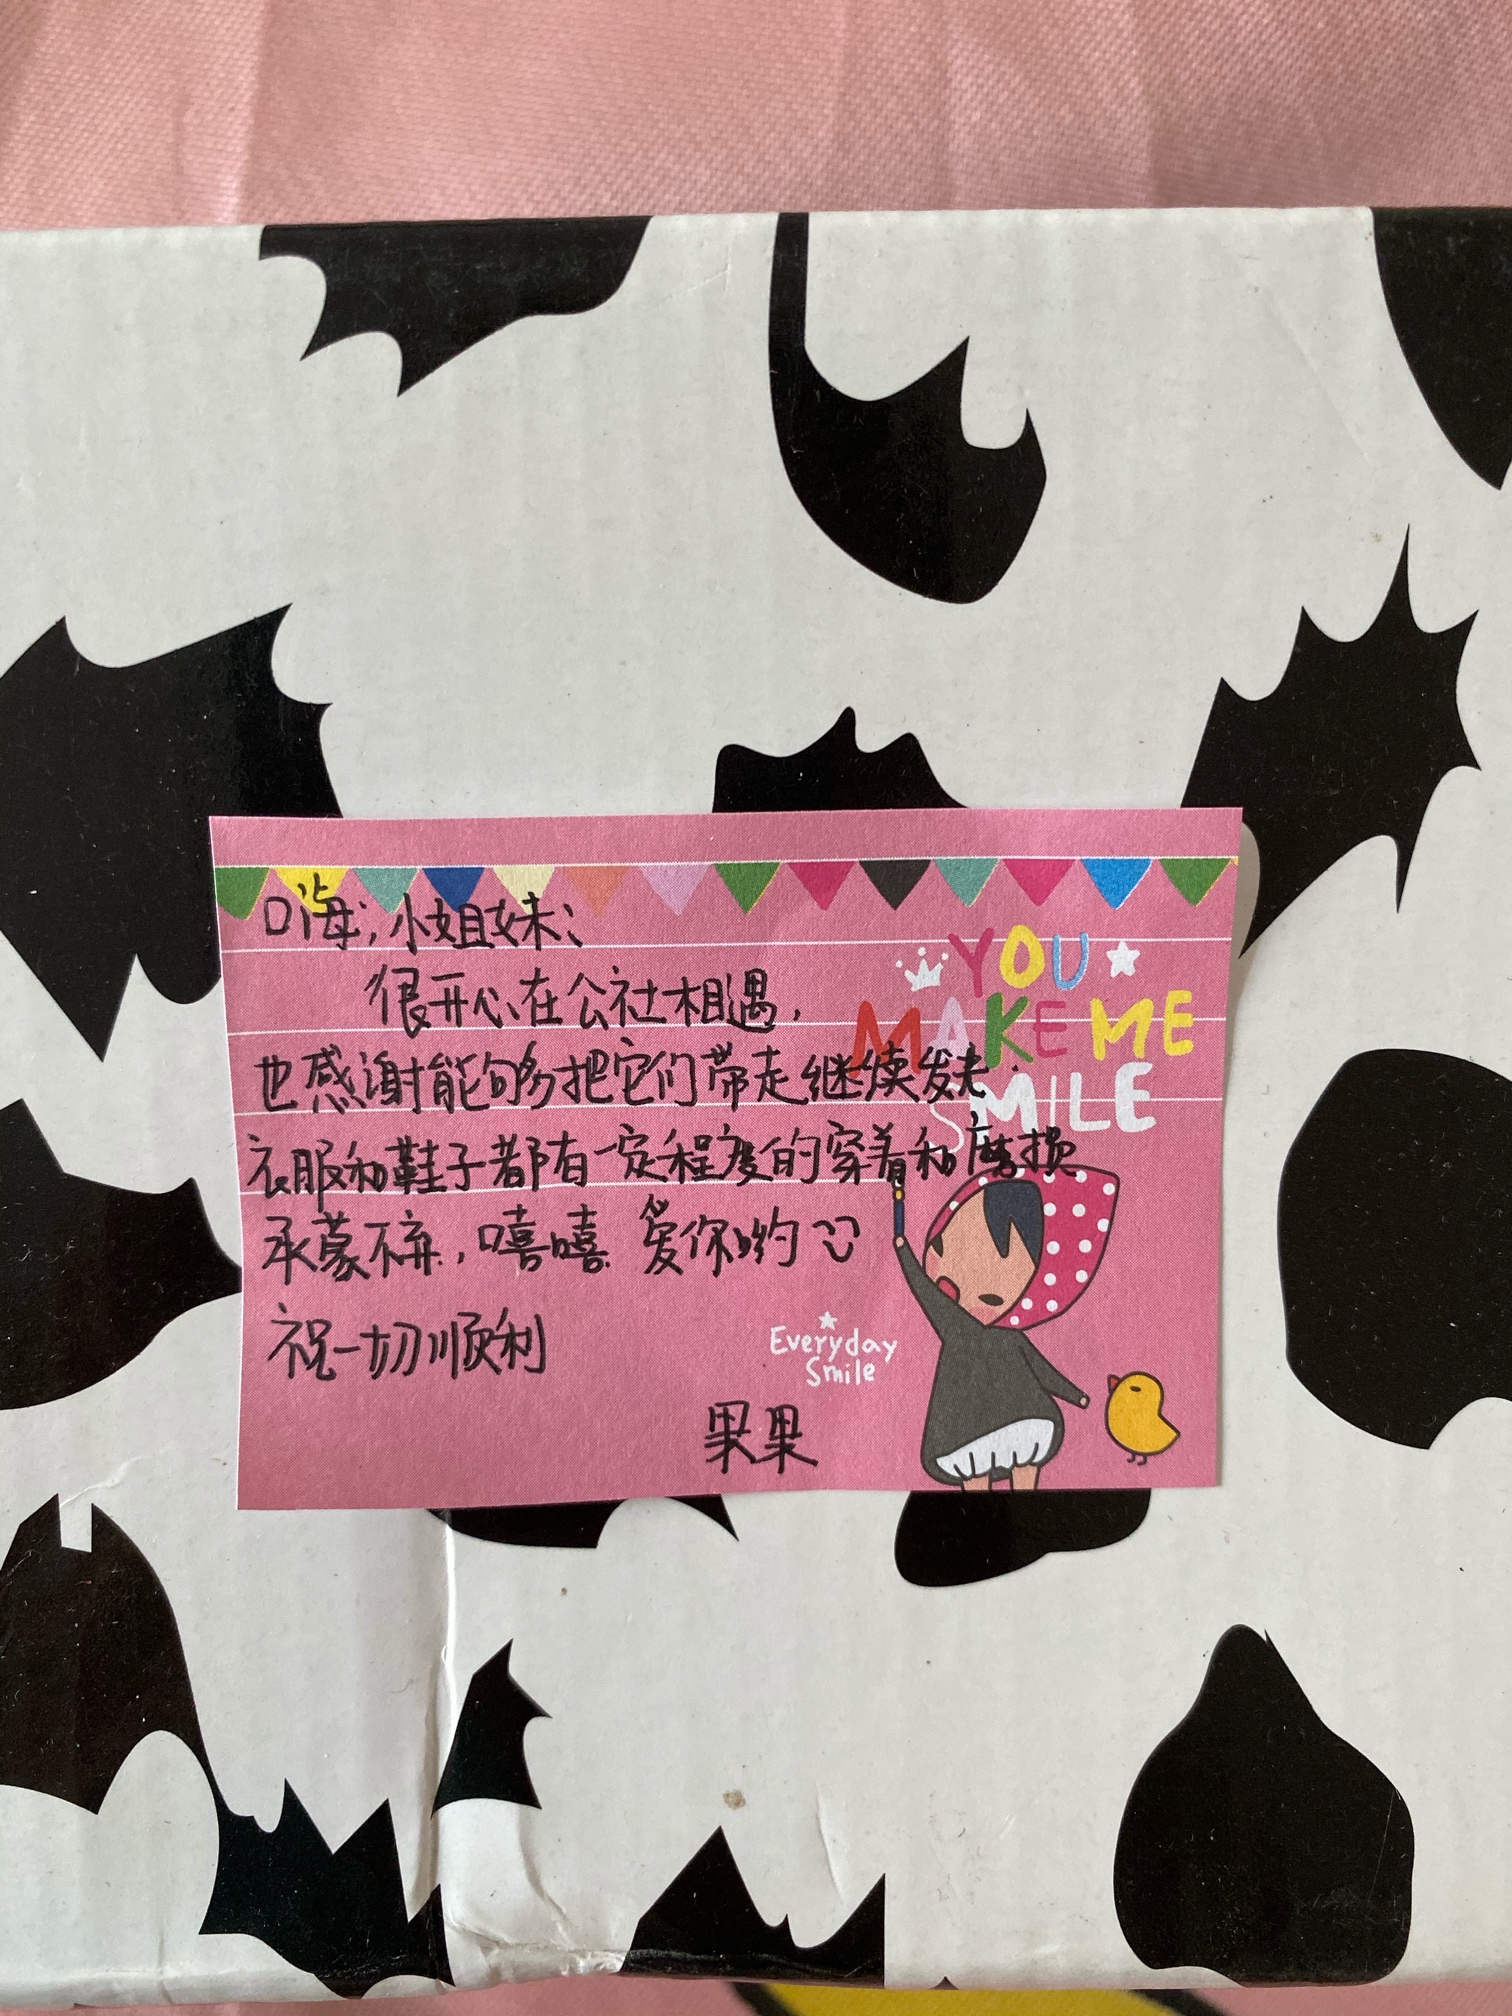 嗨,小姐妹:
很开心在公社相遇,
也感谢能够把它们带走继续发光.
衣服和鞋子都有一定程度的穿着和磨损
承蒙不弃,嘻嘻 爱你哟
祝一切顺利
果果
YOU
MAKE ME
SMILE
Everyday
Smile